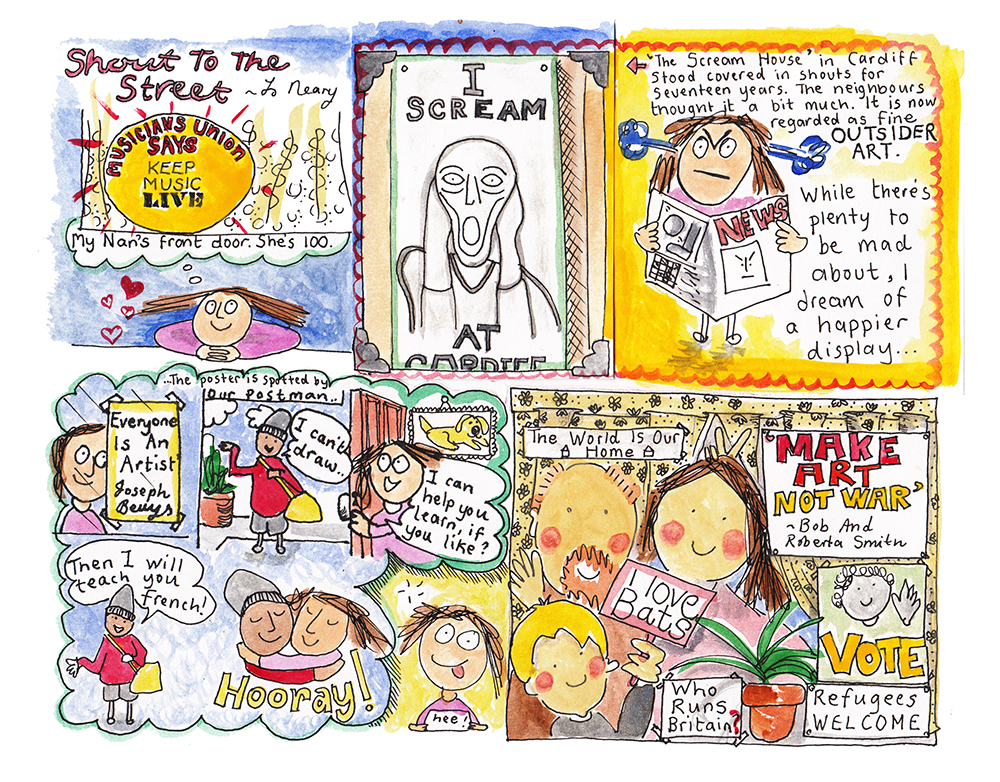 Shout To The
Street ~ Jo Neary
MUSICIANS UNION
SAYS
KEEP
MUSIC
LIVE
My Nan's front door. She's 100.
I
SCREAM
AT
CARDIFF
'The Scream House' in Cardiff
stood covered in shouts for
seventeen years. The neighbours
thought it a bit much. It is now
regarded as fine
OUTSIDER
ART.
NEWS
While there's
plenty to
be mad
about, I
dream of
a happier
display...
...The poster is spotted by
our postman...
Everyone
Is An
Artist
Joseph
Beuys
I can't
draw..
I can
help you
learn, if
you like?
Then I will
teach you
French!
Hooray!
hee!
The World Is Our
Home
'MAKE
ART
NOT WAR'
~ Bob And
Roberta Smith
I love
Bats
VOTE
Who
Runs
Britain?
Refugees
WELCOME